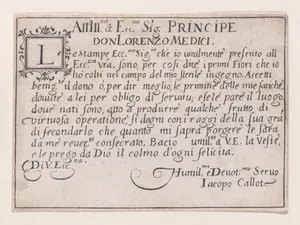 All Ill.mo & Ecc.mo Sig. PRINCIPE
DON LORENZO MEDICI.
LE stampe Ecc.mo Sig.re che io umilmente presento all
Ecc.za vra. sono, per cosi dire i primi Fiori che io
hò colti nel campo del mio sterile ingegno. Accetti
benig.te il dono ò, per dir meglio, le primitie delle mie fatiche,
douute a lei per obligo di seruitù, e se le pare il luogo
doue nati sono, atto à produrre qualche frutto di
virtuosa operatione, si degni con i raggi della sua gra.
di secondarlo che quanto mi saprà porgere le sarà
da mè reuer.te consecrato. Bacio umil.te a V.E. la Veste,
e le prego da Dio il colmo d'ogni felicità.
Di V. Ecc.za
Humil.mo e Deuot.mo Seruo
Iacopo Callot